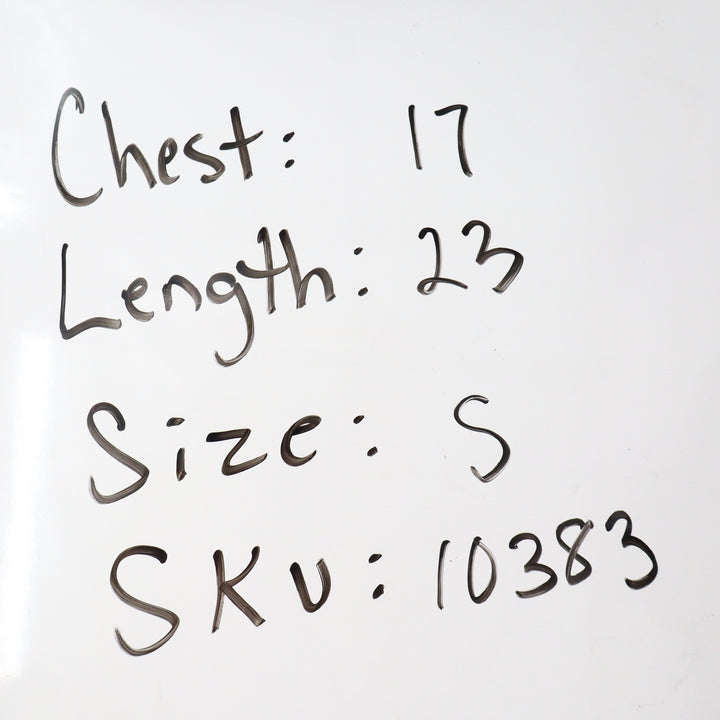 Chest: 17
Length: 23
Size: S
SKU: 10383